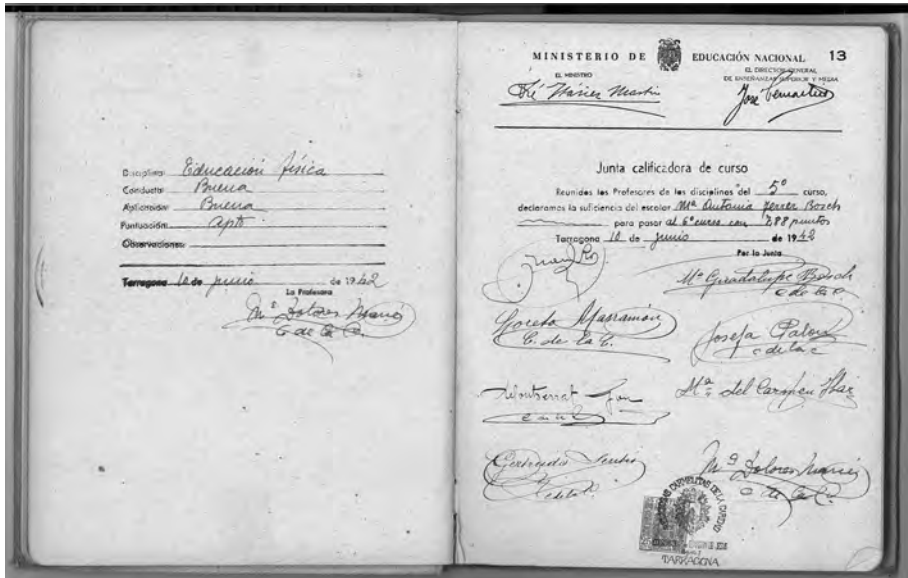 Disciplina: Educación física
Conducta: Buena
Aplicación: Buena
Puntuación: Apto
Observaciones:
Tarragona 10 de junio de 1942
La Profesora
Mª Dolores
C de la C.
MINISTERIO DE EDUCACIÓN NACIONAL 13
EL MINISTRO
EL DIRECTOR GENERAL
DE ENSEÑANZAS SUPERIOR Y MEDIA
José
Junta calificadora de curso
Reunidos los Profesores de las disciplinas del 5º curso,
declaramos la suficiencia del escolar Mª Antonia Ferrer Bosch
para pasar al 6º curso con 7,88 puntos
Tarragona 10 de junio de 1942
Por la Junta
Mª Guadalupe Bosch
C de la C.
Loreto Masramón
C. de la C.
Josefa
C de la C
Montserrat
Mª del Carmen
Gertrudis
Mª Dolores
C de la C.
CARMELITAS DE LA CARIDAD
TARRAGONA